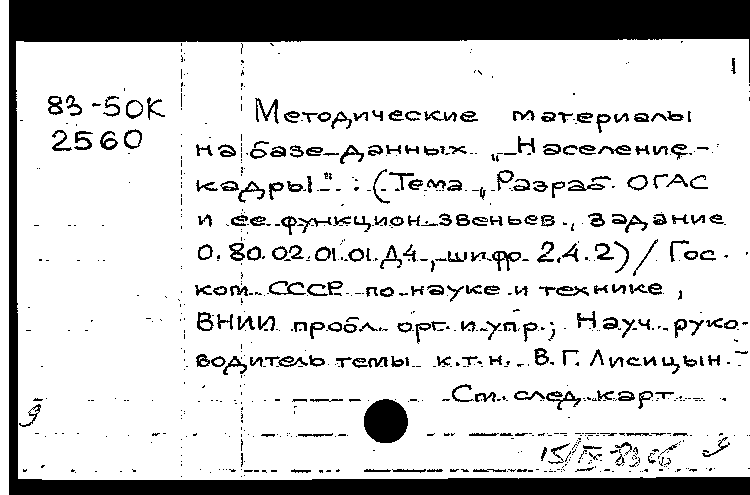 1
83-50К
2560
Методические материалы
на базе данных „Население-
кадры" : (Тема „Разраб. ОГАС
и ее функцион. звеньев., задание
0.80.02.01.01.Д4, шифр 2.4.2) / Гос.
ком. СССР по науке и технике,
ВНИИ пробл. орг. и упр.; Науч. руко-
водитель темы к.т.н. В.Г. Лисицын.-
См. след. карт.
15/IX-83